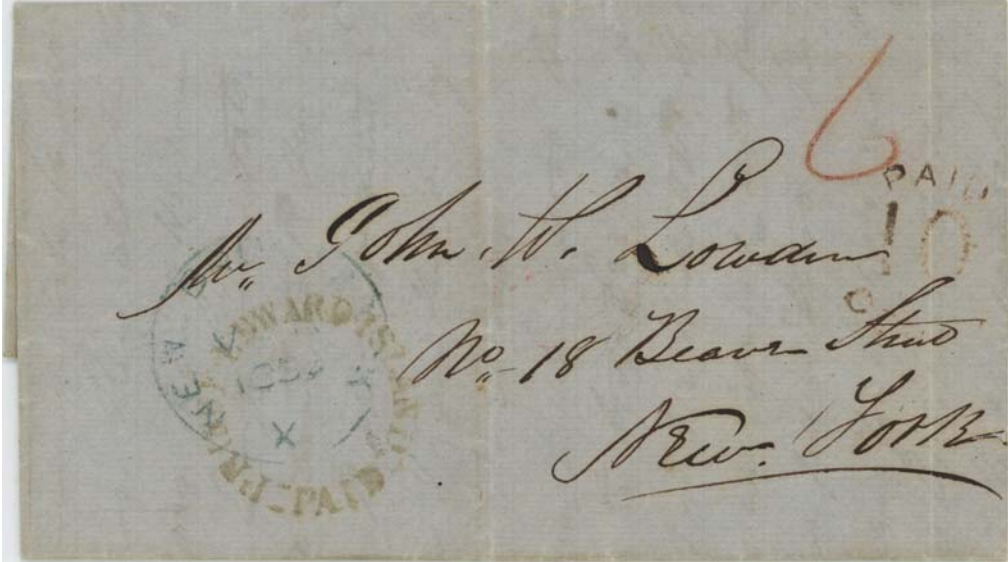 6
PAID
10
Mr. John W. Lowden
No. 18 Beaver Street
New York
PRINCE EDWARD ISLAND
PAID
NEW